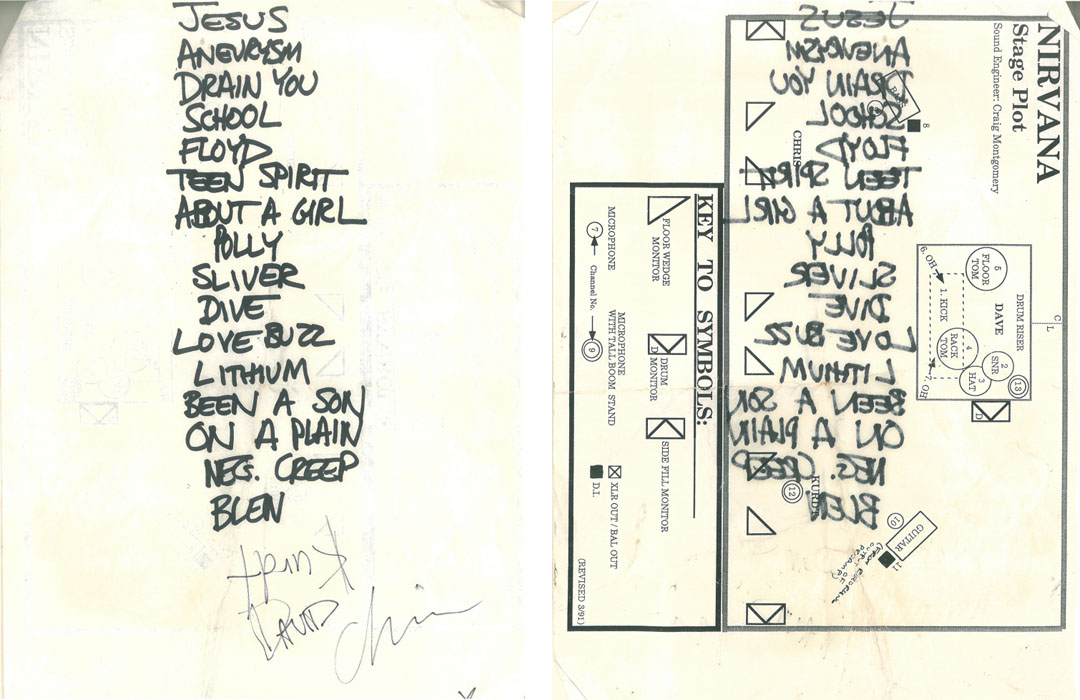 JESUS
ANEURYSM
DRAIN YOU
SCHOOL
FLOYD
TEEN SPIRIT
ABOUT A GIRL
POLLY
SLIVER
DIVE
LOVE BUZZ
LITHIUM
BEEN A SON
ON A PLAIN
NEG. CREEP
BLEN
Kurdt
DAVID
Chris
NIRVANA
Stage Plot
Sound Engineer: Craig Montgomery
BASS
8
CHRIS
C L
DRUM RISER
DAVE
5
FLOOR
TOM
6. OH
1. KICK
4
RACK
TOM
2
SNR
3
HAT
13
7. OH
D
KURDT
12
10
GUITAR
11
KEY TO SYMBOLS:
FLOOR WEDGE
MONITOR
D
DRUM
MONITOR
SIDE FILL MONITOR
MICROPHONE
7
Channel No.
9
MICROPHONE
WITH TALL BOOM STAND
XLR OUT / BAL OUT
D.I.
(REVISED 3/91)